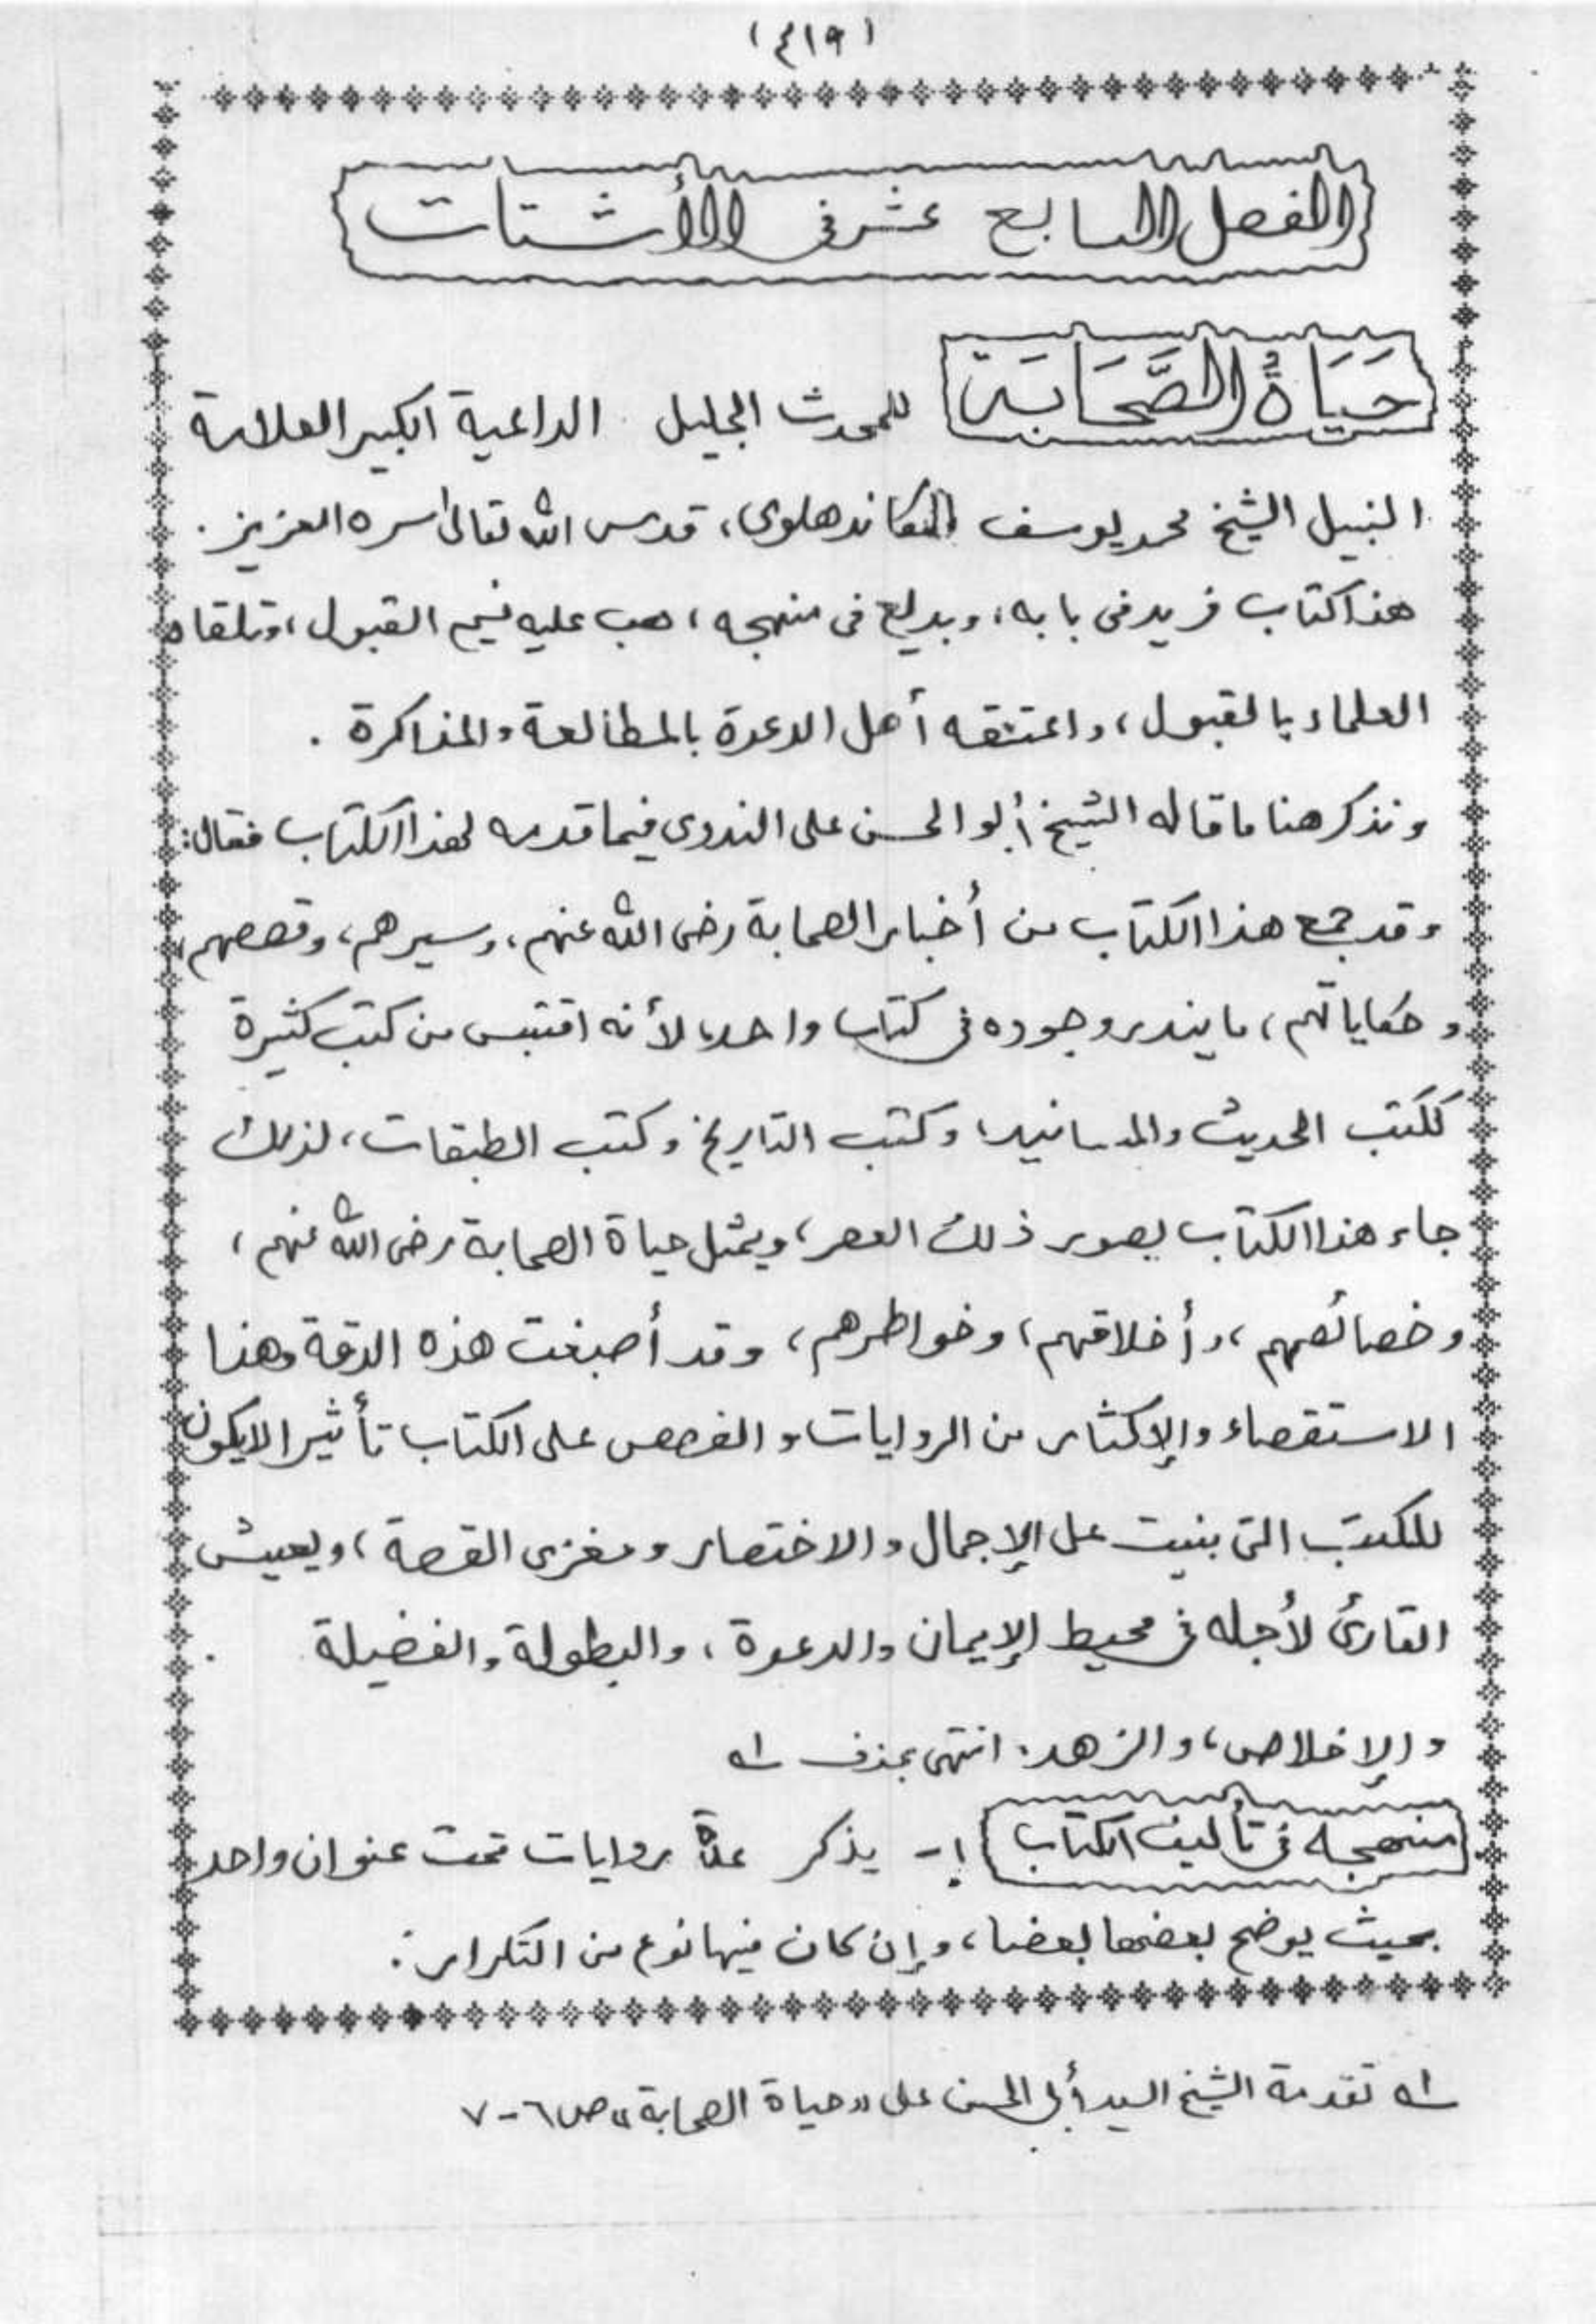 (٤١٩)
الفصل السابع عشر فى الأشتات
حَيَاةُ الصَّحَابَة للمحدث الجليل الداعية الكبير العلامة
النبيل الشيخ محمد يوسف الكاندهلوى، قدس الله تعالىٰ سره العزيز.
هذا كتاب فريد فى بابه، وبديع فى منهجه، هب عليه نسيم القبول، وتلقاه
العلماء بالقبول، واعتنقه أهل الدعوة بالمطالعة والمذاكرة.
ونذكر هنا ما قاله الشيخ أبو الحسن على الندوى فيما قدمه لهذا الكتاب فقال:
وقد جمع هذا الكتاب من أخبار الصحابة رضى الله عنهم، وسيرهم، وقصصهم،
وحكاياتهم، ما يندر وجوده فى كتاب واحد، لأنه اقتبس من كتب كثيرة
ككتب الحديث والمسانيد، وكتب التاريخ وكتب الطبقات، لذلك
جاء هذا الكتاب يصور ذلك العصر، ويمثل حياة الصحابة رضى الله عنهم،
وخصائصهم، وأخلاقهم، وخواطرهم، وقد أصبغت هذه الدقة وهذا
الاستقصاء والإكثار من الروايات والقصص على الكتاب تأثيرا لا يكون
للكتب التى بنيت على الإجمال والاختصار ومغزى القصة، ويعيش
القارئ لأجله فى محيط الإيمان والدعوة، والبطولة والفضيلة
والإخلاص، والزهد. انتهى بحذف ـ١ه
منهجه فى تأليف الكتاب ١- يذكر عدة روايات تحت عنوان واحد
بحيث يوضح بعضها بعضا، وإن كان فيها نوع من التكرار.
ـ١ه تقدمة الشيخ السيد أبى الحسن على «حياة الصحابة» ص ٦-٧